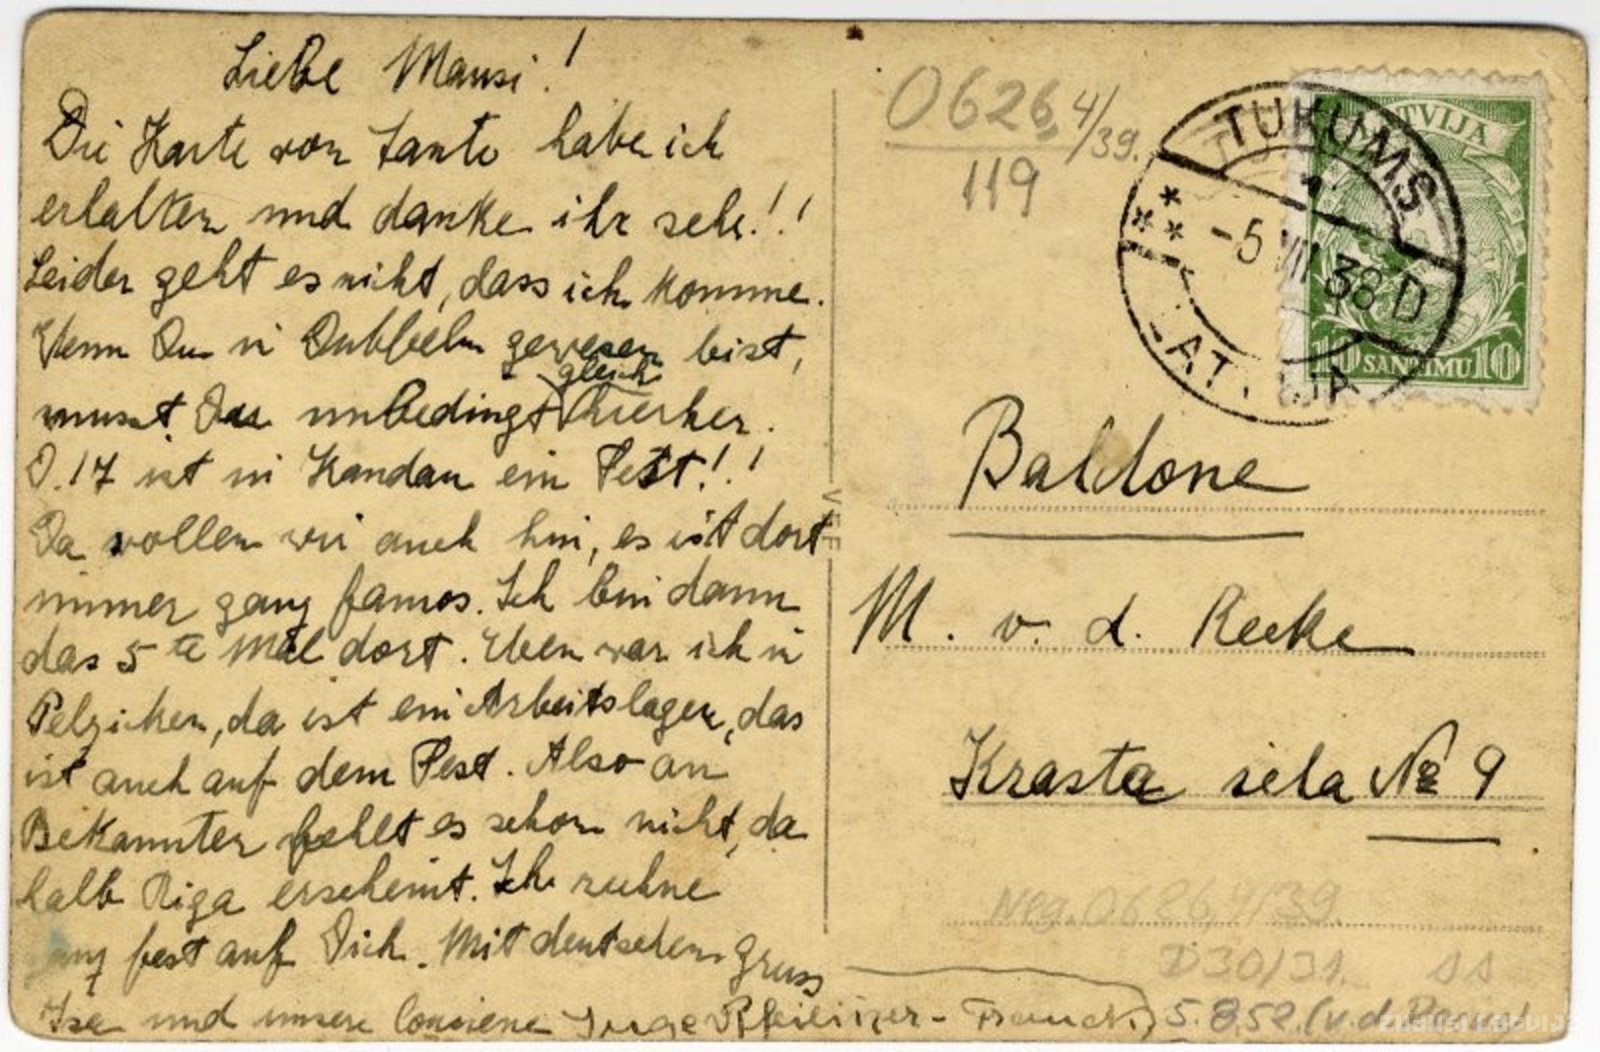 Liebe Mausi!
Die Karte von Tante habe ich
erhalten und danke ihr sehr!!
Leider geht es nicht, dass ich komme.
Wenn Du in Dubbeln gewesen bist,
gleich
musst Du unbedingt hierher.
D. 17 ist in Kandau ein Fest!!
Da wollen wir auch hin, es ist dort
immer ganz famos. Ich bin dann
das 5te Mal dort. Eben war ich in
Pelzicken, da ist ein Arbeitslager, das
ist auch auf dem Fest. Also an
Bekannten fehlt es schon nicht, da
halb Riga erscheint. Ich rechne
ganz fest auf Dich. Mit deutschem Gruss
und unsere
0626 4/39.
119
TUKUMS
-5 VII 38 D
LATVIJA
LATVIJA
10 SANTIMU 10
VEF
Baldone
M. v. d. Recke
Krasta iela № 9
Neg. 0626,4/39.
D30/31.
5.8.52. (v. d.
ZUDUSI LATVIJA